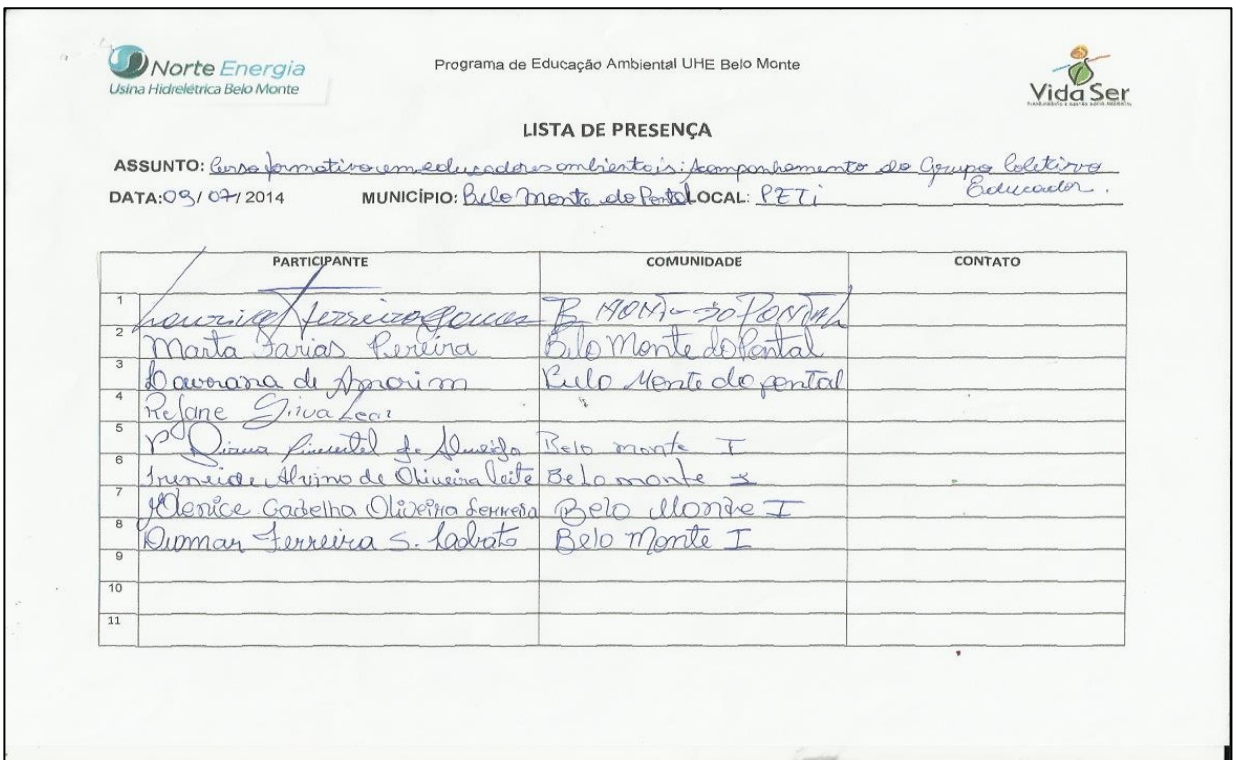 Norte Energia
Usina Hidrelétrica Belo Monte
Programa de Educação Ambiental UHE Belo Monte
Vida Ser
LISTA DE PRESENÇA
ASSUNTO: Curso formativo em educadores ambientais: Acompanhamento do Grupo Coletivo
Educador.
DATA: 09/07/2014 MUNICÍPIO: Belo Monte do Pontal LOCAL: PETi
PARTICIPANTE COMUNIDADE CONTATO
1 Lourival Ferreira Gomes B MONT- DO PONTAL
2 Marta Farias Pereira Belo Monte do Pontal
3 de Amorim Belo Monte do pontal
4 Rejane Silva Leal
5 Diana Pimentel de Almeida Belo monte I
6 Ireneide Alvino de Oliveira Leite Belo monte I
7 Gadelha Oliveira Ferreira Belo Monte I
8 Diomar Ferreira S. Belo Monte I
9
10
11